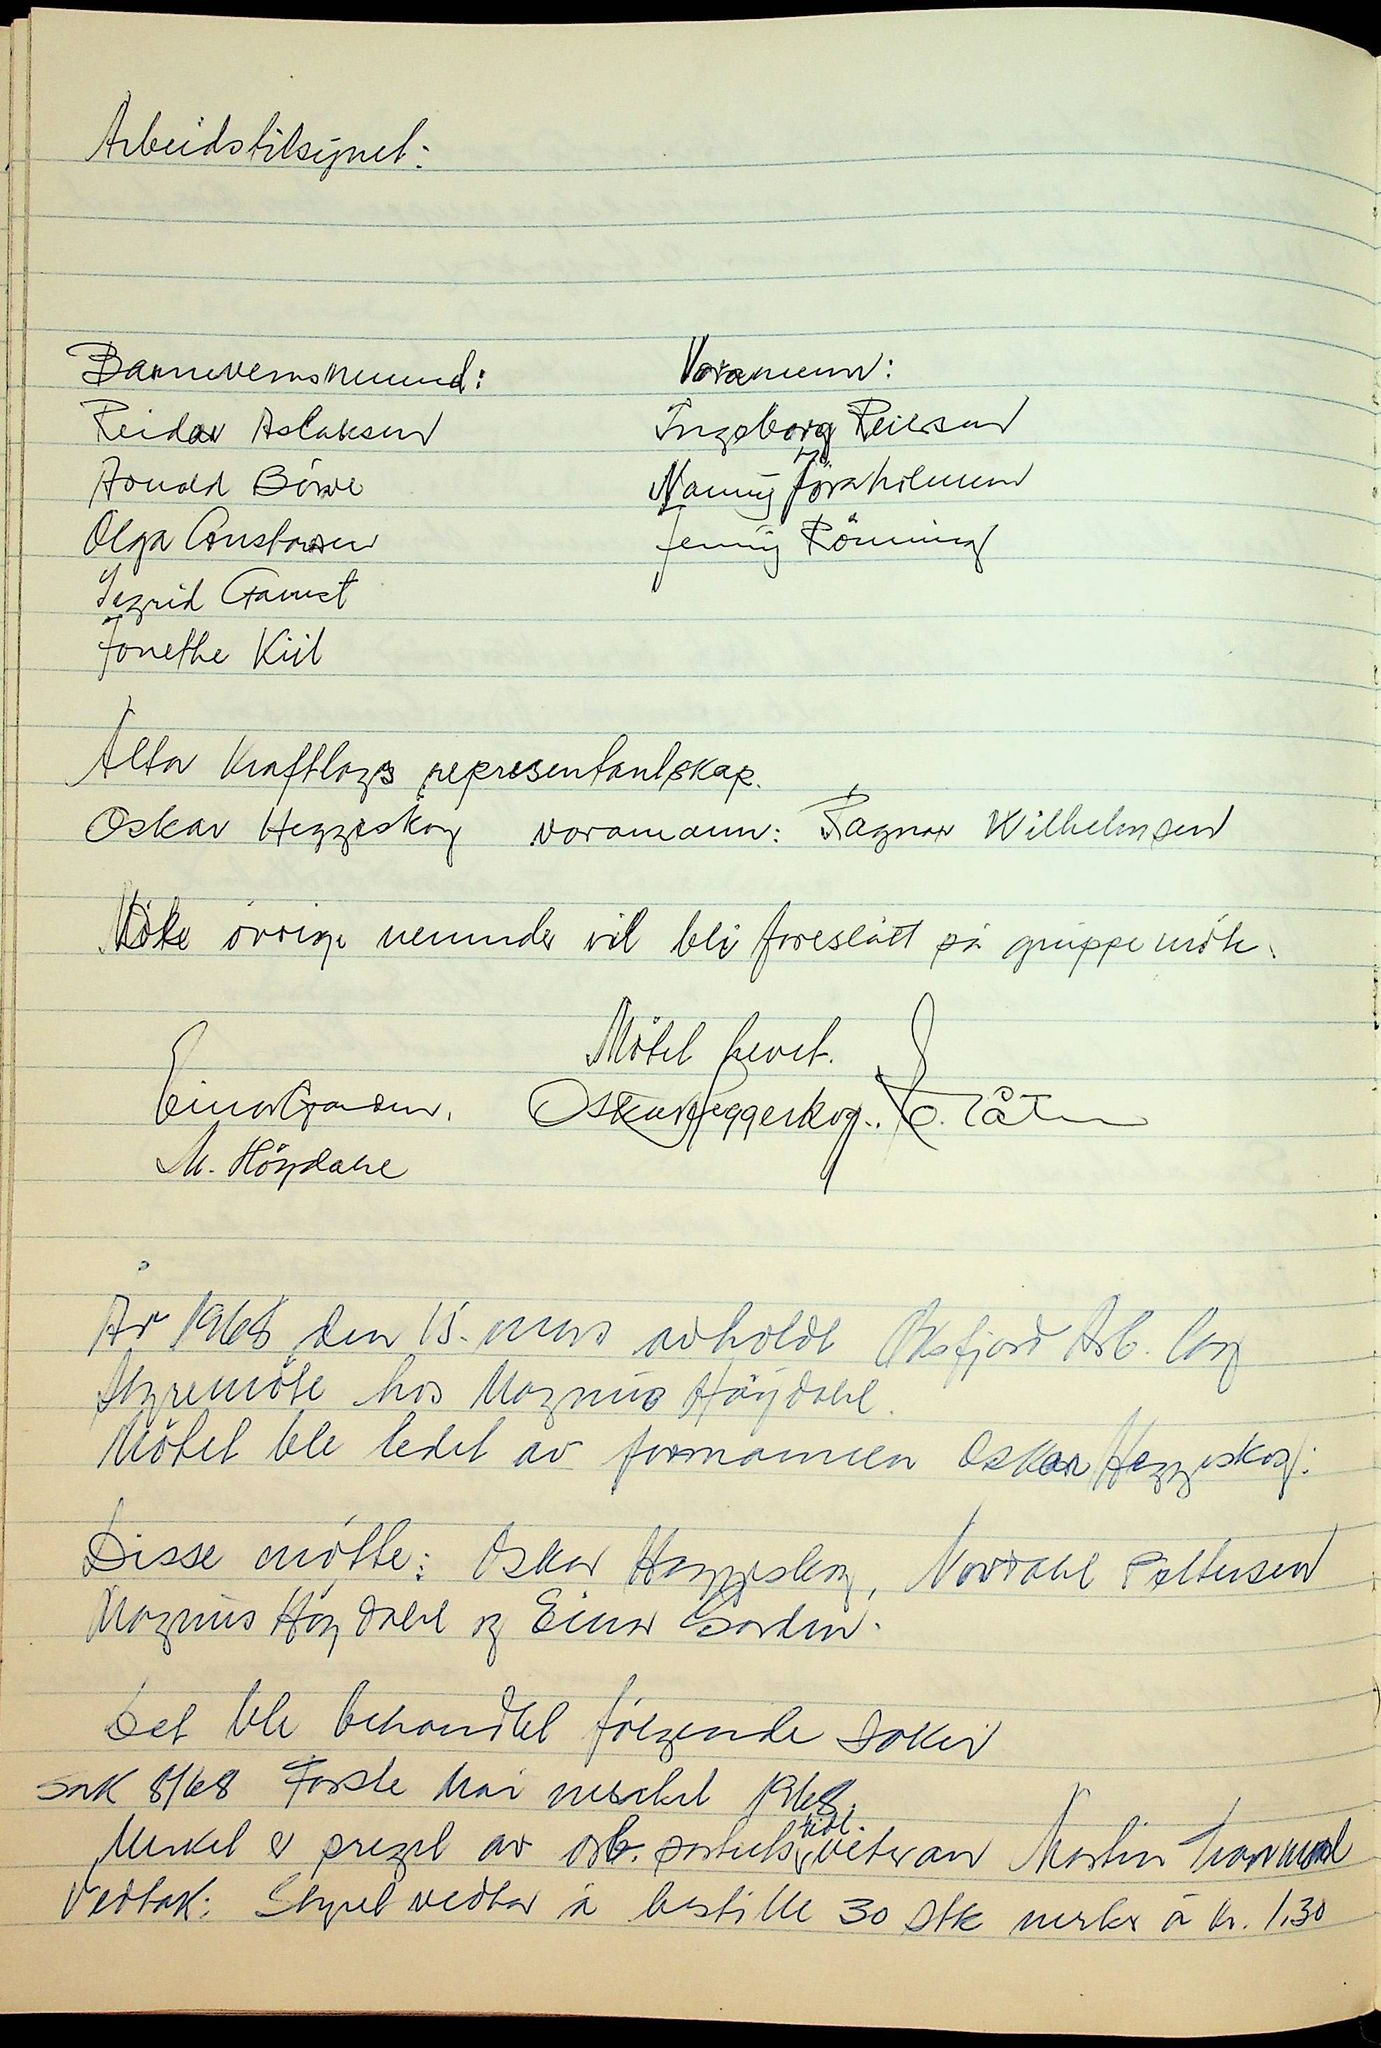 Arbeidstilsynet:
Barnevernsnemnd: Varamenn:
Reidar Aslaksen Ingeborg Reiersen
Arnold Börve Nanny Jörnholmen
Olga Gustavsen Jenny Rönning
Ingrid Gamst
Jonethe Kiil
Alta Kraftlags representantskap.
Oskar Heggeskog varamann: Ragnar Wilhelmsen
övrige nemnder vil bli foreslått på gruppemöte.
Mötet hevet.
Einar Garden. Oskar Heggeskog.
M. Höydahl
År 1968 den 15. mars avholdt Öksfjord Arb. lag
Styremöte hos Magnus Höydahl.
Mötet ble ledet av formannen Oskar Heggeskog.
Disse mötte: Oskar Heggeskog, Nordahl Pettersen
Magnus Höydahl og Einar Garden.
Det ble behandlet fölgende saker
Sak 8/68 Förste Mai merket 1968.
Merket er preget av arb. partiets veteran Martin Tranmæl
Vedtak: Styret vedtar å bestille 30 stk merker à kr. 1,30